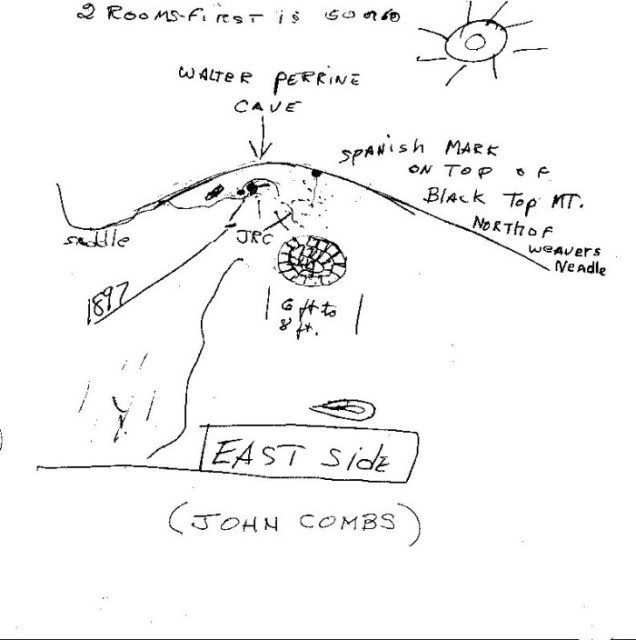 2 ROOMS-FIRST IS 60 or 60
WALTER PERRINE
CAVE
SPANISH MARK
ON TOP OF
Black Top MT.
NORTH OF
WEAVERS
Neadle
saddle
JRC
1897
6 ft to
8 ft.
EAST Side
(JOHN COMBS)